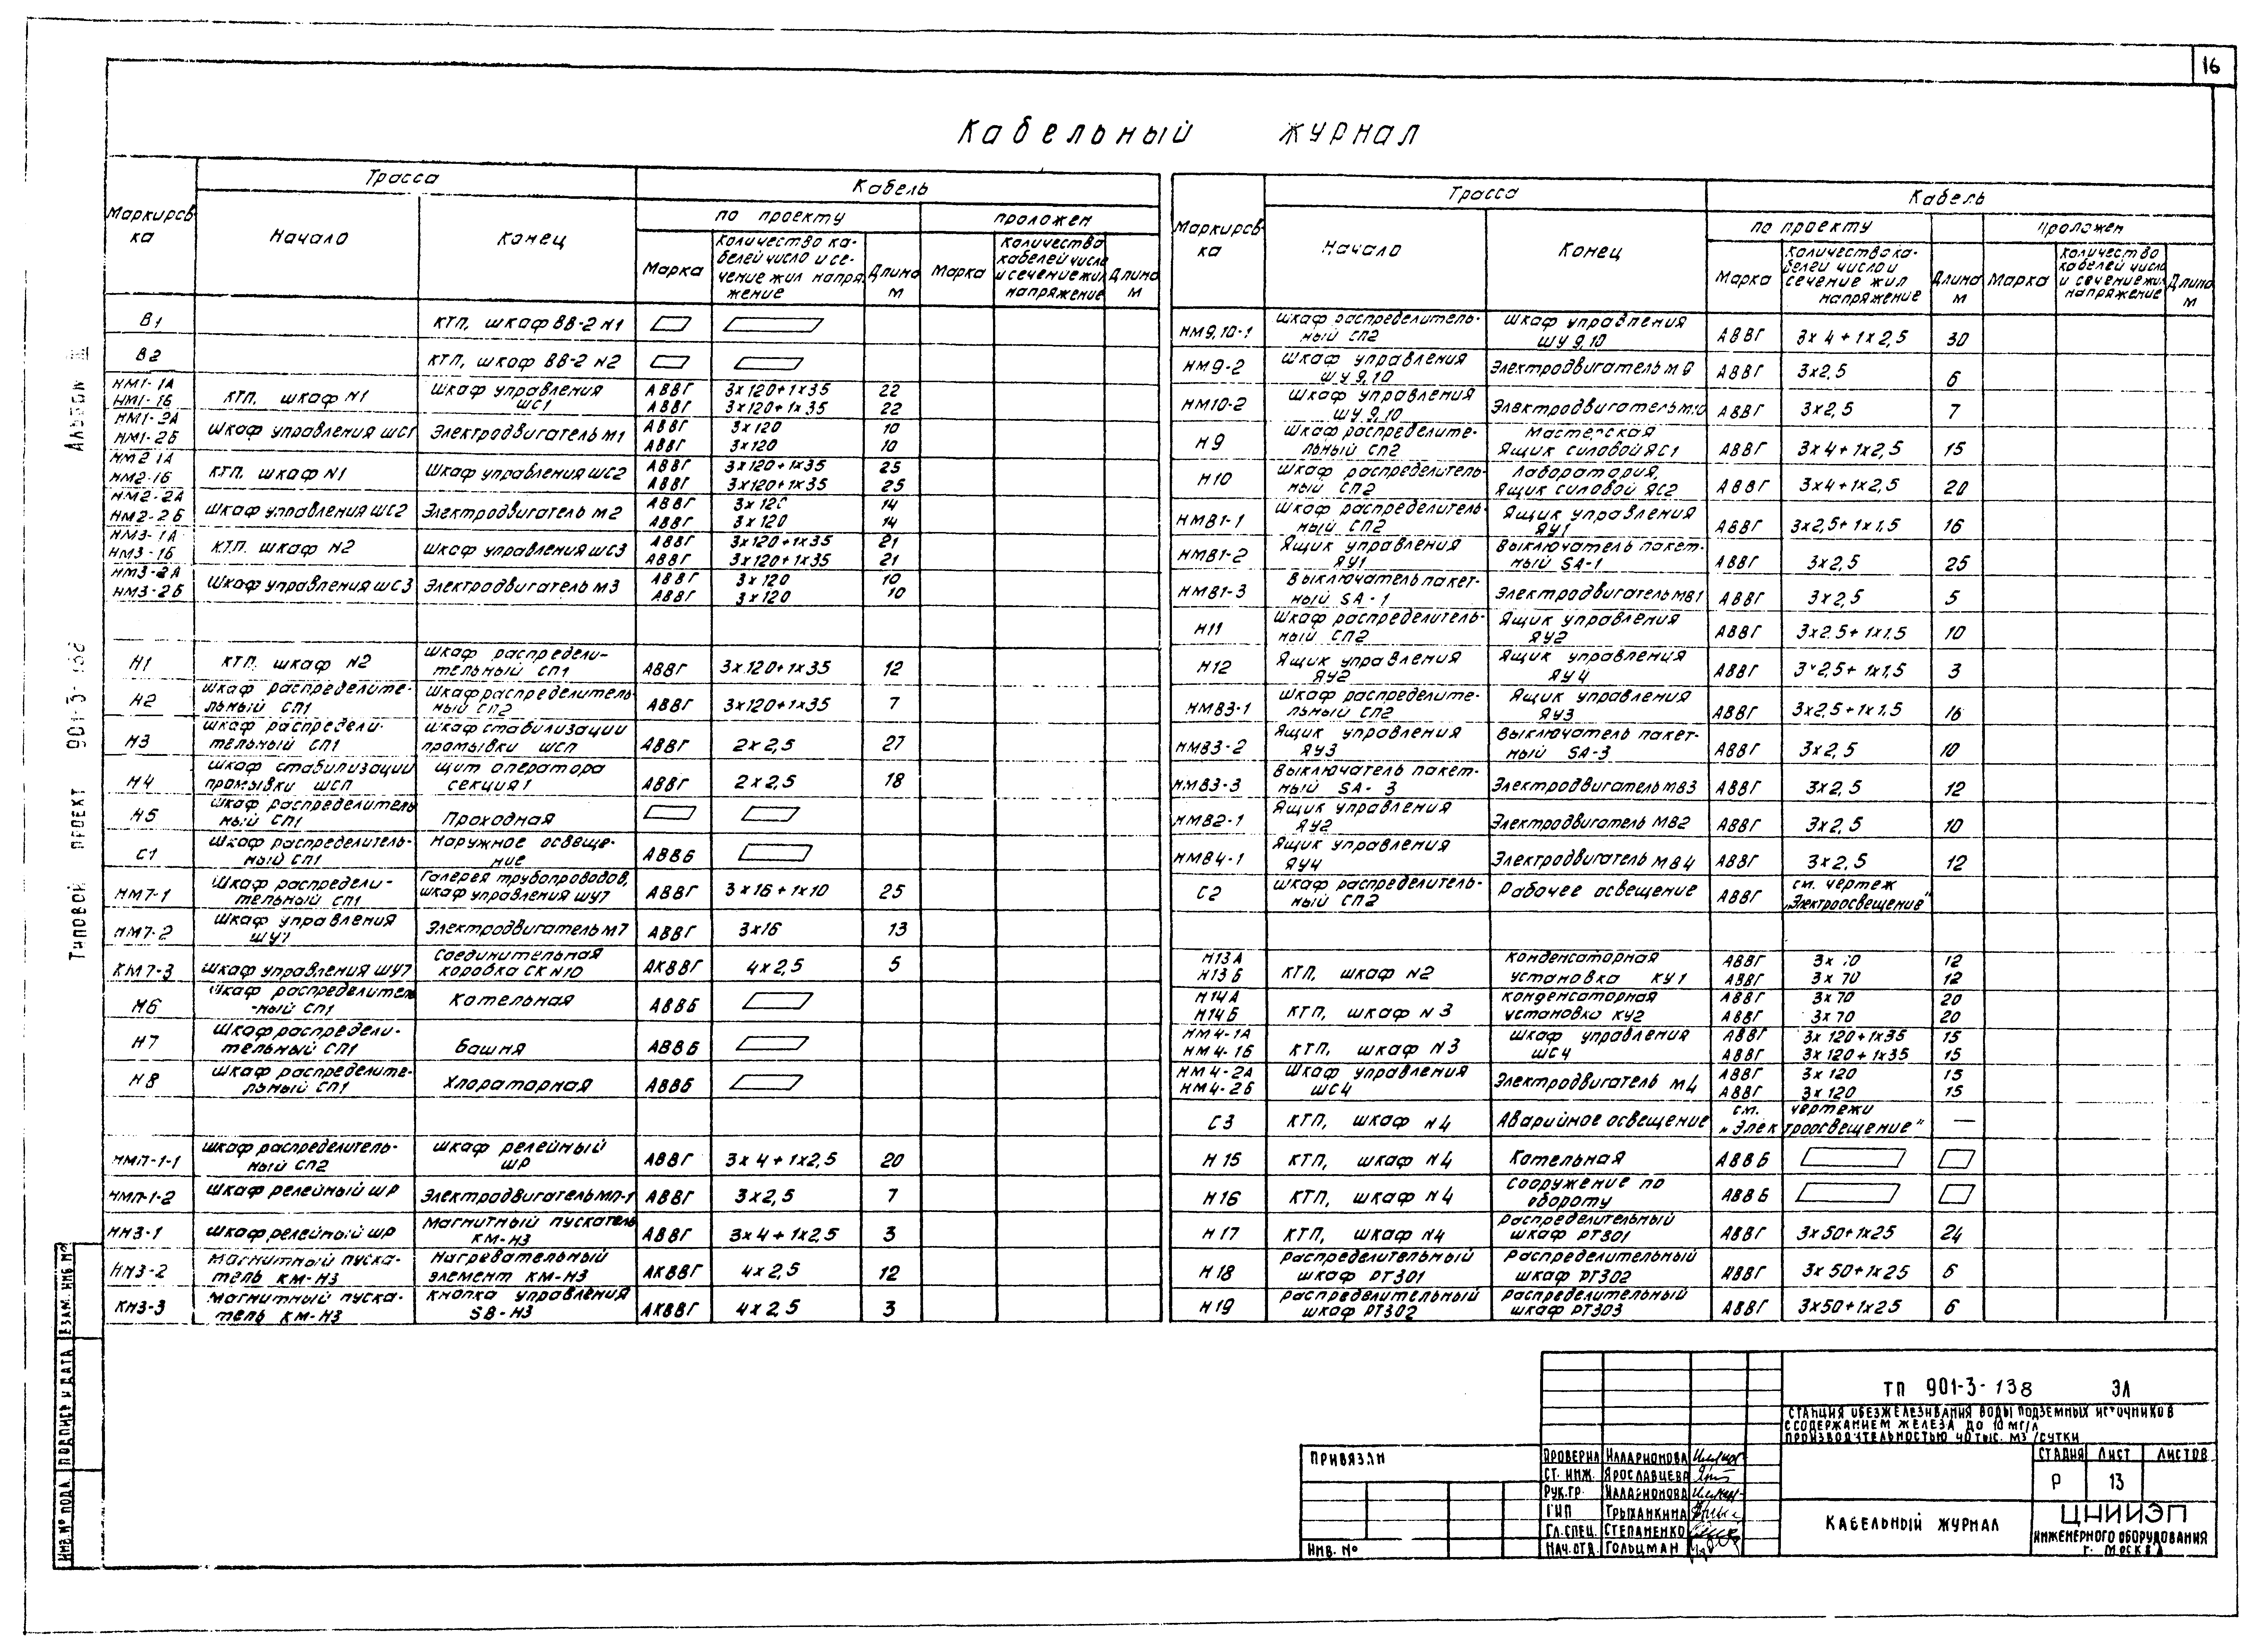 16
Кабельный журнал
Маркировка | Трасса | Кабель
Начало | Конец | по проекту | проложен
Марка | Количество кабелей число и сечение жил напряжение | Длина м | Марка | Количество кабелей число и сечение жил напряжение | Длина м
В1 | КТП, шкаф ВВ-2 N1
В2 | КТП, шкаф ВВ-2 N2
НМ1-1А | КТП, шкаф N1 | Шкаф управления ШС1 | АВВГ | 3х120+1х35 | 22
НМ1-1Б | АВВГ | 3х120+1х35 | 22
НМ1-2А | Шкаф управления ШС1 | Электродвигатель М1 | АВВГ | 3х120 | 10
НМ1-2Б | АВВГ | 3х120 | 10
НМ2 1А | КТП. шкаф N1 | Шкаф управления ШС2 | АВВГ | 3х120+1х35 | 25
НМ2-1Б | АВВГ | 3х120+1х35 | 25
НМ2-2А | Шкаф управления ШС2 | Электродвигатель М2 | АВВГ | 3х120 | 14
НМ2-2Б | АВВГ | 3х120 | 14
НМ3-1А | КТП. шкаф N2 | Шкаф управления ШС3 | АВВГ | 3х120+1х35 | 21
НМ3-1Б | АВВГ | 3х120+1х35 | 21
НМ3-2А | Шкаф управления ШС3 | Электродвигатель М3 | АВВГ | 3х120 | 10
НМ3-2Б | АВВГ | 3х120 | 10
Н1 | КТП. шкаф N2 | Шкаф распределительный СП1 | АВВГ | 3х120+1х35 | 12
Н2 | Шкаф распределительный СП1 | Шкаф распределительный СП2 | АВВГ | 3х120+1х35 | 7
Н3 | Шкаф распределительный СП1 | Шкаф стабилизации промывки ШСП | АВВГ | 2х2,5 | 27
Н4 | Шкаф стабилизации промывки ШСП | Щит оператора секция 1 | АВВГ | 2х2,5 | 18
Н5 | Шкаф распределительный СП1 | Проходная
С1 | Шкаф распределительный СП1 | Наружное освещение | АВВБ
НМ7-1 | Шкаф распределительный СП1 | Галерея трубопроводов, шкаф управления ШУ7 | АВВГ | 3х16+1х10 | 25
НМ7-2 | Шкаф управления ШУ7 | Электродвигатель М7 | АВВГ | 3х16 | 13
КМ7-3 | Шкаф управления ШУ7 | Соединительная коробка СК N10 | АКВВГ | 4х2,5 | 5
Н6 | Шкаф распределитель-ный СП1 | Котельная | АВВБ
Н7 | Шкаф распределительный СП1 | Башня | АВВБ
Н8 | Шкаф распределительный СП1 | Хлораторная | АВВБ
НМП-1-1 | Шкаф распределительный СП2 | Шкаф релейный ШР | АВВГ | 3х4+1х2,5 | 20
НМП-1-2 | Шкаф релейный ШР | Электродвигатель МП-1 | АВВГ | 3х2,5 | 7
НН3-1 | Шкаф релейный ШР | Магнитный пускатель КМ-Н3 | АВВГ | 3х4+1х2,5 | 3
НН3-2 | Магнитный пускатель КМ-Н3 | Нагревательный элемент КМ-Н3 | АКВВГ | 4х2,5 | 12
КН3-3 | Магнитный пускатель КМ-Н3 | Кнопка управления SB-Н3 | АКВВГ | 4х2,5 | 3
Маркировка | Трасса | Кабель
Начало | Конец | по проекту | проложен
Марка | Количество кабелей число и сечение жил напряжение | Длина м | Марка | Количество кабелей число и сечение жил напряжение | Длина м
НМ9,10-1 | Шкаф распределительный СП2 | Шкаф управления ШУ 9,10 | АВВГ | 3х4+1х2,5 | 30
НМ9-2 | Шкаф управления ШУ 9,10 | Электродвигатель М9 | АВВГ | 3х2,5 | 6
НМ10-2 | Шкаф управления ШУ 9,10 | Электродвигатель М10 | АВВГ | 3х2,5 | 7
Н9 | Шкаф распределительный СП2 | Мастерская Ящик силовой ЯС1 | АВВГ | 3х4+1х2,5 | 15
Н10 | Шкаф распределительный СП2 | Лаборатория, Ящик силовой ЯС2 | АВВГ | 3х4+1х2,5 | 20
НМВ1-1 | Шкаф распределительный СП2 | Ящик управления ЯУ1 | АВВГ | 3х2,5+1х1,5 | 16
НМВ1-2 | Ящик управления ЯУ1 | Выключатель пакетный SA-1 | АВВГ | 3х2,5 | 25
НМВ1-3 | Выключатель пакетный SA-1 | Электродвигатель МВ1 | АВВГ | 3х2,5 | 5
Н11 | Шкаф распределительный СП2 | Ящик управления ЯУ2 | АВВГ | 3х2.5+1х1.5 | 10
Н12 | Ящик управления ЯУ2 | Ящик управления ЯУ4 | АВВГ | 3х2,5+1х1,5 | 3
НМВ3-1 | Шкаф распределительный СП2 | Ящик управления ЯУ3 | АВВГ | 3х2,5+1х1,5 | 16
НМВ3-2 | Ящик управления ЯУ3 | Выключатель пакетный SA-3 | АВВГ | 3х2,5 | 10
НМВ3-3 | Выключатель пакетный SA-3 | Электродвигатель МВ3 | АВВГ | 3х2,5 | 12
НМВ2-1 | Ящик управления ЯУ2 | Электродвигатель МВ2 | АВВГ | 3х2,5 | 10
НМВ4-1 | Ящик управления ЯУ4 | Электродвигатель МВ4 | АВВГ | 3х2,5 | 12
С2 | Шкаф распределительный СП2 | Рабочее освещение | АВВГ | см. чертеж „Электроосвещение"
Н13А | КТП, шкаф N2 | Конденсаторная установка КУ1 | АВВГ | 3х70 | 12
Н13Б | АВВГ | 3х70 | 12
Н14А | КТП, шкаф N3 | Конденсаторная установка КУ2 | АВВГ | 3х70 | 20
Н14Б | АВВГ | 3х70 | 20
НМ4-1А | КТП, шкаф N3 | Шкаф управления ШС4 | АВВГ | 3х120+1х35 | 15
НМ4-1Б | АВВГ | 3х120+1х35 | 15
НМ4-2А | Шкаф управления ШС4 | Электродвигатель М4 | АВВГ | 3х120 | 15
НМ4-2Б | АВВГ | 3х120 | 15
С3 | КТП, шкаф N4 | Аварийное освещение | см. чертежи „Электроосвещение" | —
Н15 | КТП, шкаф N4 | Котельная | АВВБ
Н16 | КТП, шкаф N4 | Сооружение по обороту | АВВБ
Н17 | КТП, шкаф N4 | Распределительный шкаф РТ301 | АВВГ | 3х50+1х25 | 24
Н18 | Распределительный шкаф РТ301 | Распределительный шкаф РТ302 | АВВГ | 3х50+1х25 | 6
Н19 | Распределительный шкаф РТ302 | Распределительный шкаф РТ303 | АВВГ | 3х50+1х25 | 6
ТИПОВОЙ ПРОЕКТ 901-3-138 АЛЬБОМ
ИНВ.№ ПОДЛ. ПОДПИСЬ И ДАТА ВЗАМ. ИНВ.№
ПРИВЯЗАН
ИНВ. №
ПРОВЕРИЛ ИЛЛАРИОНОВА
СТ. ИНЖ. ЯРОСЛАВЦЕВА
РУК.ГР. ИЛЛАРИОНОВА
ГИП ТРЫХАНКИНА
ГЛ.СПЕЦ. СТЕПАНЕНКО
НАЧ.ОТД. ГОЛЬЦМАН
ТП 901-3-138 ЭЛ
СТАНЦИЯ ОБЕЗЖЕЛЕЗИВАНИЯ ВОДЫ ПОДЗЕМНЫХ ИСТОЧНИКОВ
С СОДЕРЖАНИЕМ ЖЕЛЕЗА ДО 10 МГ/Л
ПРОИЗВОДИТЕЛЬНОСТЬЮ 40 ТЫС. М3/СУТКИ
СТАДИЯ ЛИСТ ЛИСТОВ
Р 13
КАБЕЛЬНЫЙ ЖУРНАЛ
ЦНИИЭП
ИНЖЕНЕРНОГО ОБОРУДОВАНИЯ
Г. МОСКВА